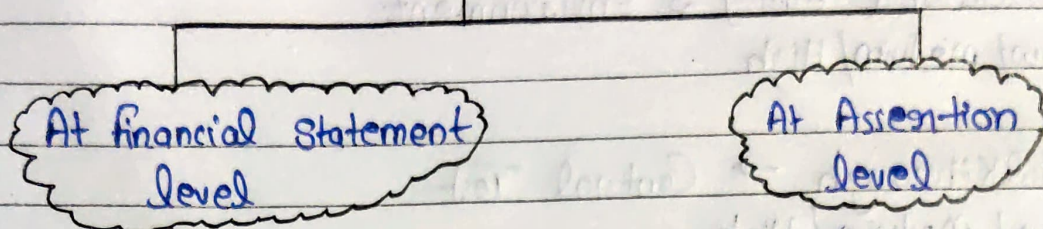 At financial Statement
level
At Assertion
level